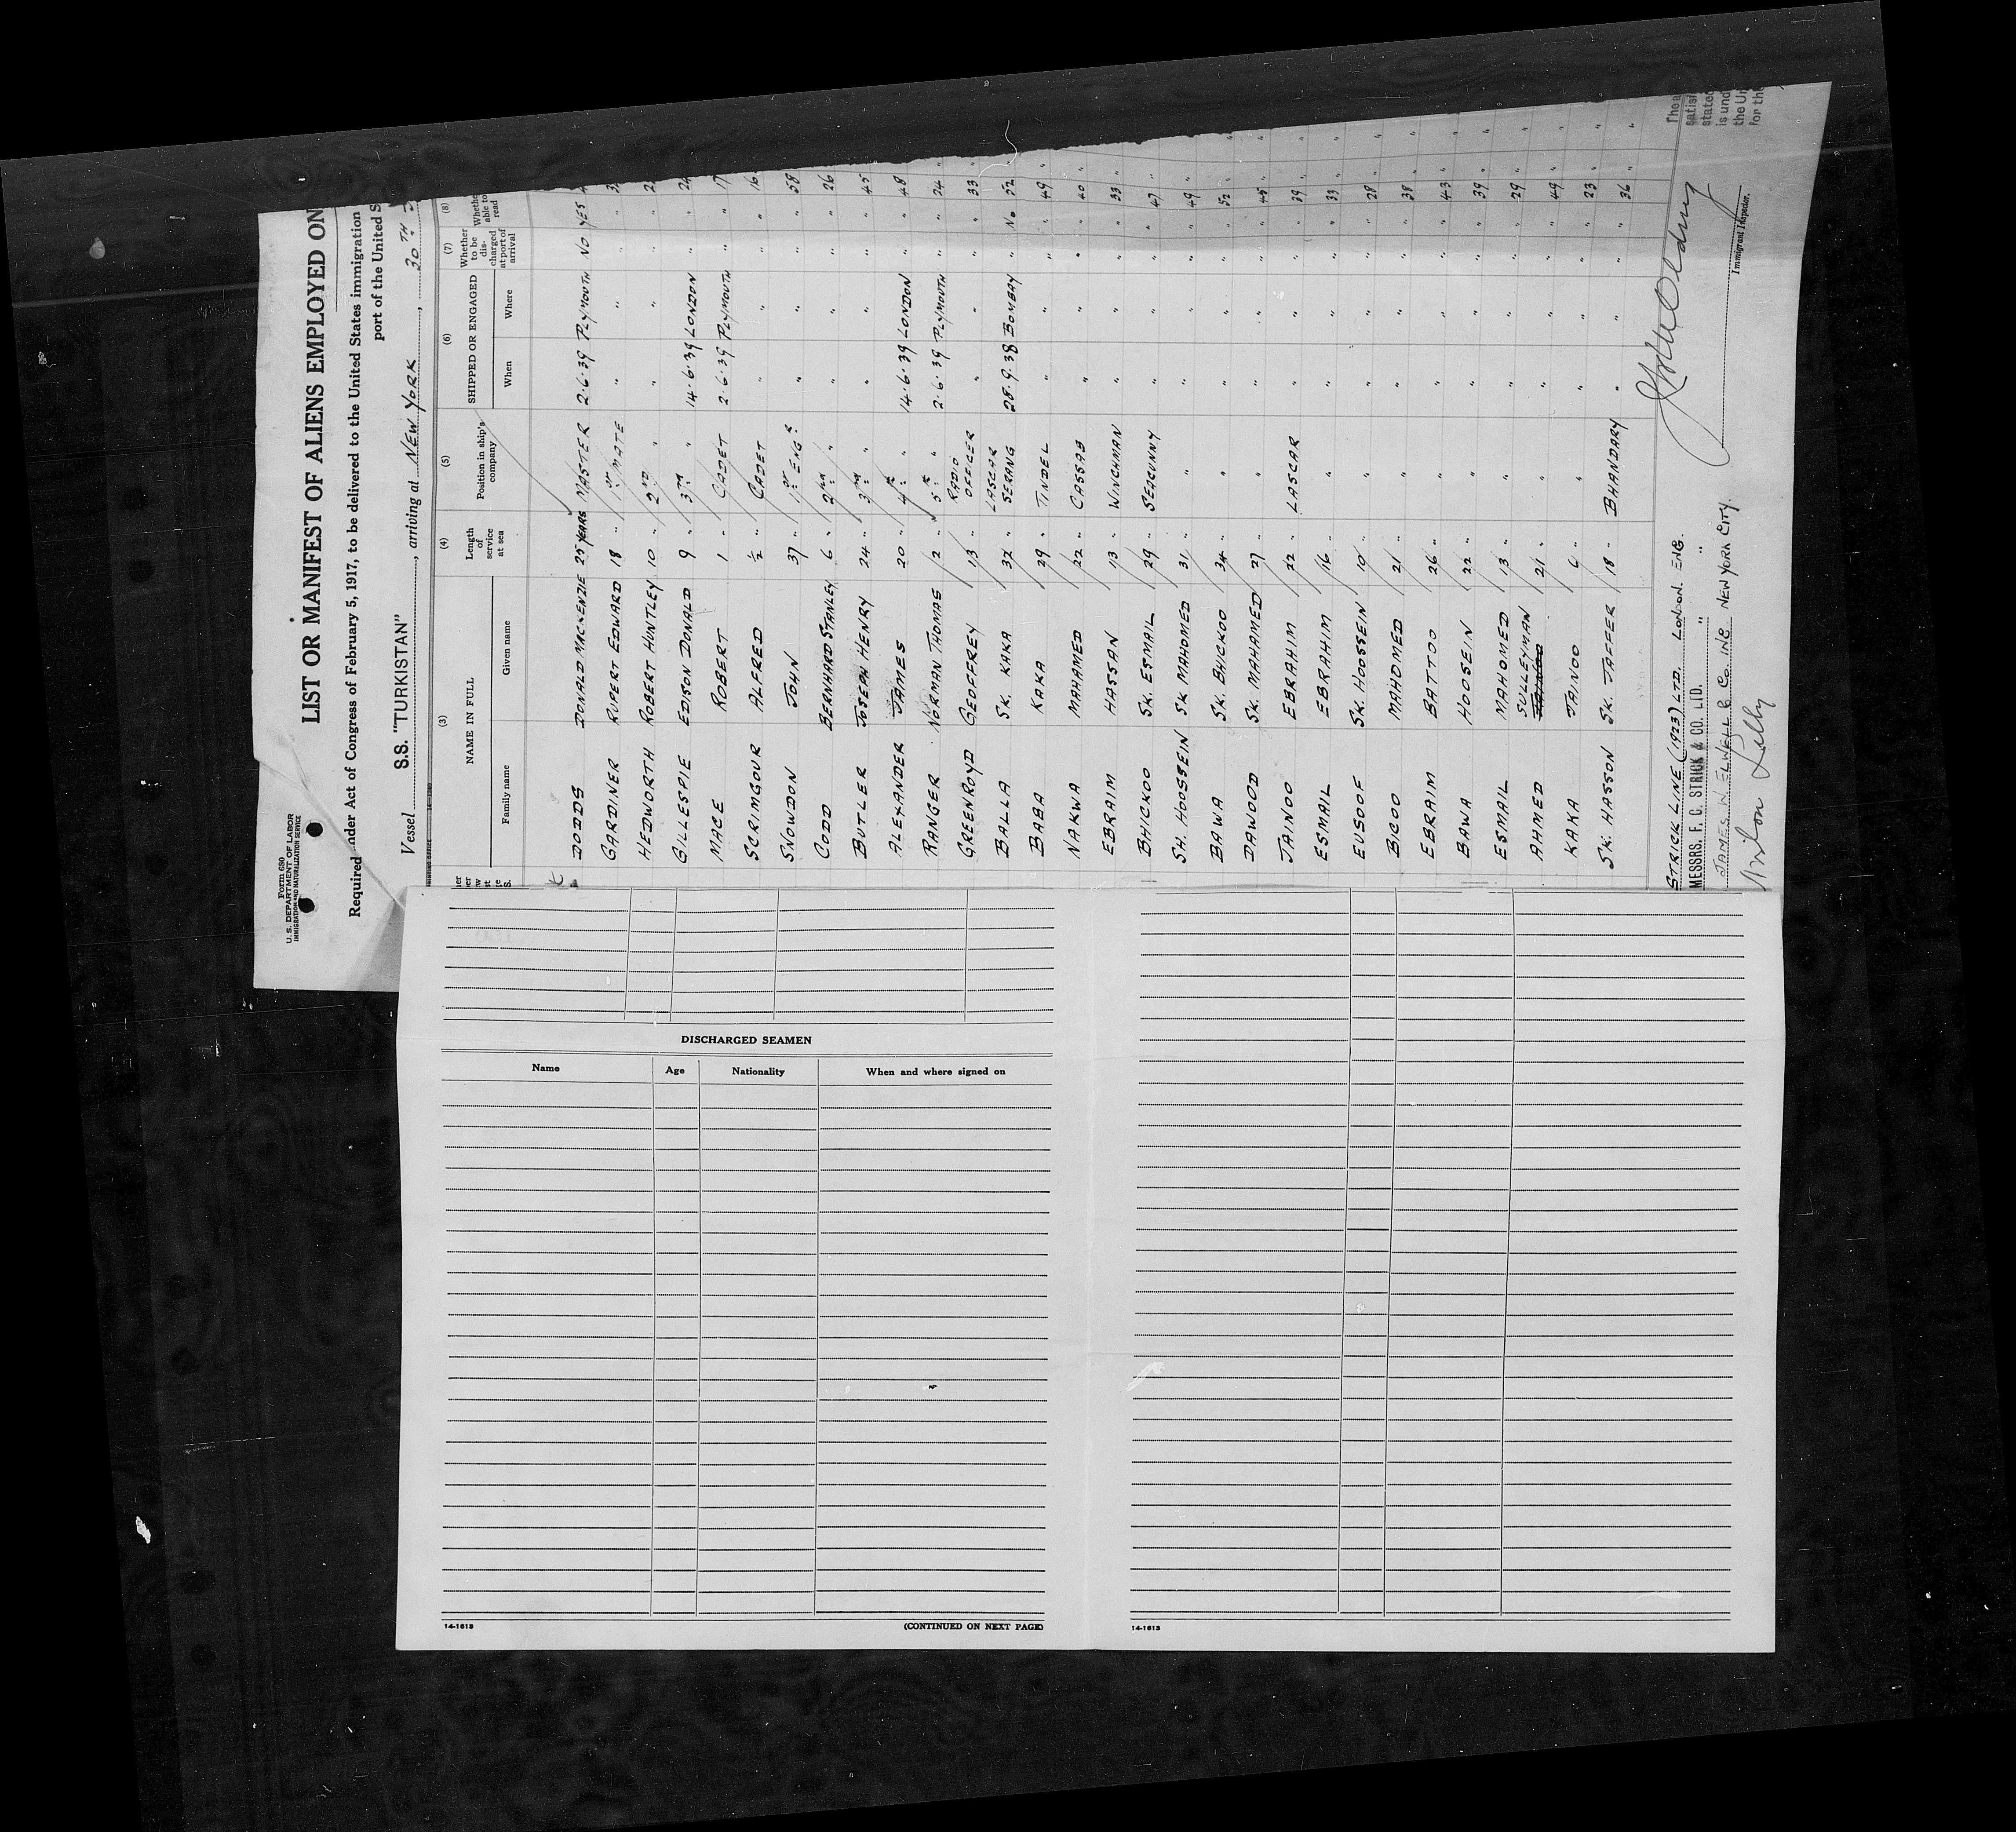 Form 680
U. S. DEPARTMENT OF LABOR
IMMIGRATION AND NATURALIZATION SERVICE
LIST OR MANIFEST OF ALIENS EMPLOYED ON
Required under Act of Congress of February 5, 1917, to be delivered to the United States immigration
port of the United S
Vessel S.S. "TURKISTAN", arriving at NEW YORK, 30TH
(3) (4) (5) (6) (7) (8)
NAME IN FULL Length of service at sea Position in ship's company SHIPPED OR ENGAGED Whether to be discharged at port of arrival Whether able to read
Family name Given name When Where
DODDS DONALD MACKENZIE 25 YEARS MASTER 2.6.39 PLYMOUTH NO YES
GARDINER RUPERT EDWARD 18 " 1ST MATE " " " "
HEDWORTH ROBERT HUNTLEY 10 " 2ND " " " " "
GILLESPIE EDISON DONALD 9 " 3RD " 14.6.39 LONDON " "
MACE ROBERT 1 " CADET 2.6.39 PLYMOUTH " " 17
SCRIMGOUR ALFRED ½ " CADET " " " " 16
SNOWDON JOHN 37 " 1ST ENGR " " " " 58
CODD BERNHARD STANLEY 6 " 2ND " " " " " 26
BUTLER JOSEPH HENRY 24 " 3RD " " " " " 45
ALEXANDER JAMES 20 " 4TH " 14.6.39 LONDON " " 48
RANGER NORMAN THOMAS 2 " 5TH " 2.6.39 PLYMOUTH " " 24 "
GREENROYD GEOFFREY 13 " RADIO OFFICER " " " " 33 "
BALLA SK. KAKA 32 " LASCAR SERANG 28.9.38 BOMBAY " No 52 "
BABA KAKA 29 " TINDEL " " " " 49 "
NAKWA MAHAMED 22 " CASSAB " " " " 40 "
EBRAIM HASSAN 13 " WINCHMAN " " " " 33 "
BHICKOO SK. ESMAIL 29 " SEACUNNY " " " " 47 "
SH. HOOSSEIN SK MAHOMED 31 " " " " " " 49 "
BAWA SK. BHICKOO 34 " " " " " " 52 "
DAWOOD SK. MAHAMED 27 " " " " " " 45 "
JAINOO EBRAHIM 22 " LASCAR " " " " 39 "
ESMAIL EBRAHIM 16 " " " " " " 33 "
EUSOOF SK. HOOSSEIN 10 " " " " " " 28 "
BICOO MAHOMED 21 " " " " " " 38 "
EBRAIM BATTOO 26 " " " " " " 43 "
BAWA HOOSEIN 22 " " " " " " 39 "
ESMAIL MAHOMED 13 " " " " " " 29 "
AHMED SULLEYMAN 21 " " " " " " 49 "
KAKA JAINOO 6 " " " " " " 23 "
SK. HASSON SK. JAFFER 18 " BHANDARY " " " " 36 "
STRICK LINE (1923) LTD. LONDON. ENG.
MESSRS. F. C. STRICK & CO. LTD. " "
JAMES W. ELWELL & Co. INC. NEW YORK CITY.
Immigrant Inspector.
The a
satisf
stated
is und
the Un
for th
DISCHARGED SEAMEN
Name Age Nationality When and where signed on
14-1613 (CONTINUED ON NEXT PAGE)
14-1613